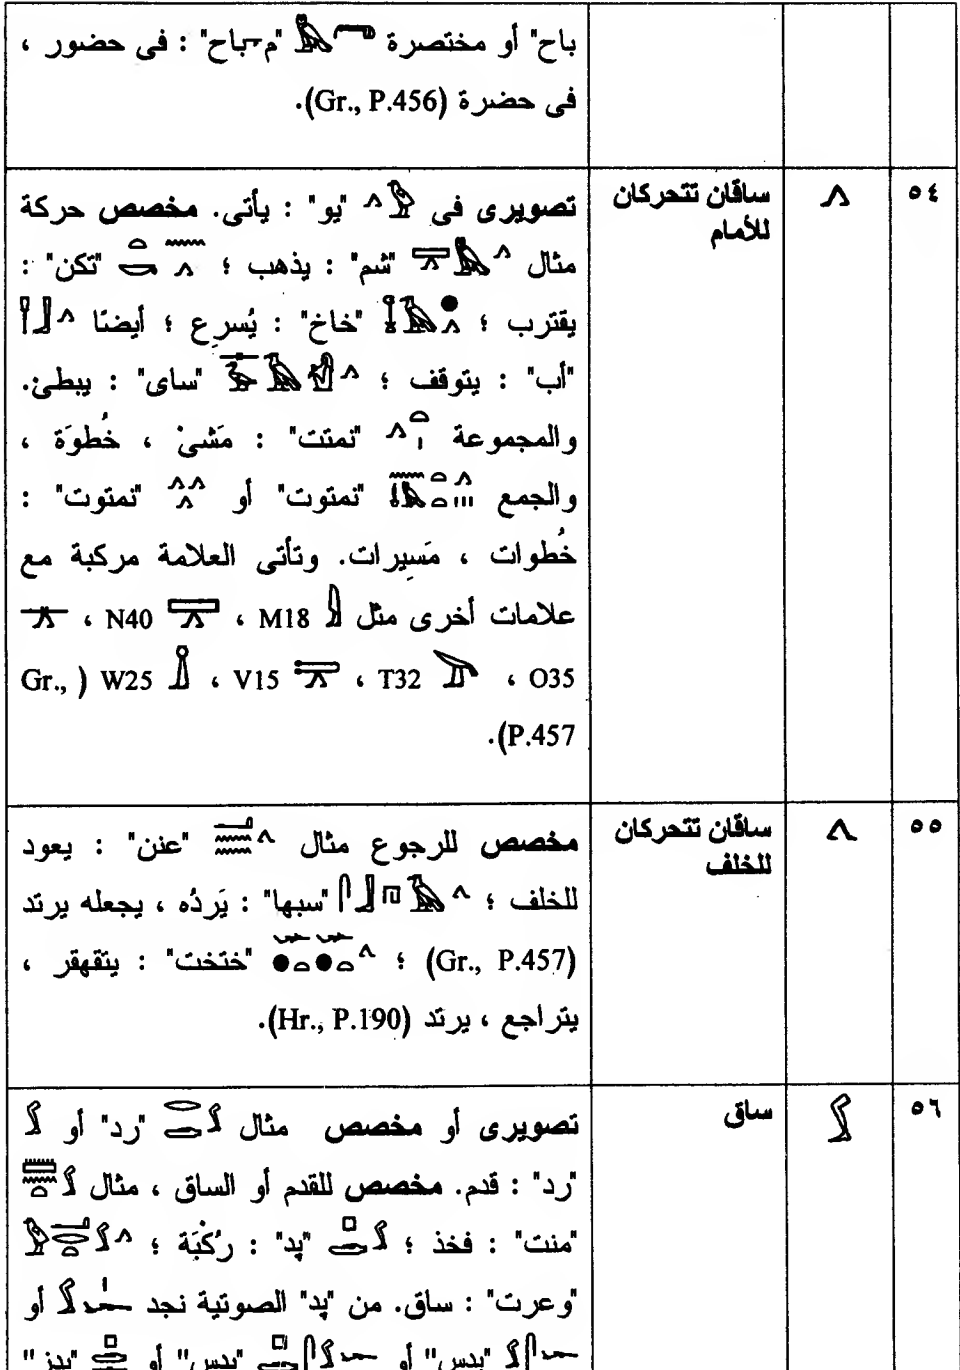 باح" أو مختصرة "م-باح" : فى حضور ،
فى حضرة (Gr., P.456).
٥٤
ساقان تتحركان
للأمام
𓂻
تصويرى فى "يو" : يأتى. مخصص حركة
مثال "شم" : يذهب ؛ "تكن" :
يقترب ؛ "خاخ" : يُسرِع ؛ أيضنًا
"أب" : يتوقف ؛ "ساى" : يبطئ.
والمجموعة "نمتت" : مَشىْ ، خُطوَة ،
والجمع "نمتوت" أو "نمتوت" :
خُطوات ، مَسِيرات. وتأتى العلامة مركبة مع
علامات أخرى مثل M18 ، N40 ،
O35 ، T32 ، V15 ، W25 ( Gr.,
P.457).
٥٥
ساقان تتحركان
للخلف
𓂽
مخصص للرجوع مثال "عنن" : يعود
للخلف ؛ "سبها" : يَردُه ، يجعله يرتد
(Gr., P.457) ؛ "ختخت" : يتقهقر ،
يتراجع ، يرتد (Hr., P.190).
٥٦
ساق
𓂾
تصويرى أو مخصص مثال "رد" أو
"رد" : قدم. مخصص للقدم أو الساق ، مثال
"منت" : فخذ ؛ "پد" : رُكْبَة ؛
"وعرت" : ساق. من "پد" الصوتية نجد أو
"پدس" أو "پدس" أو "پدز"